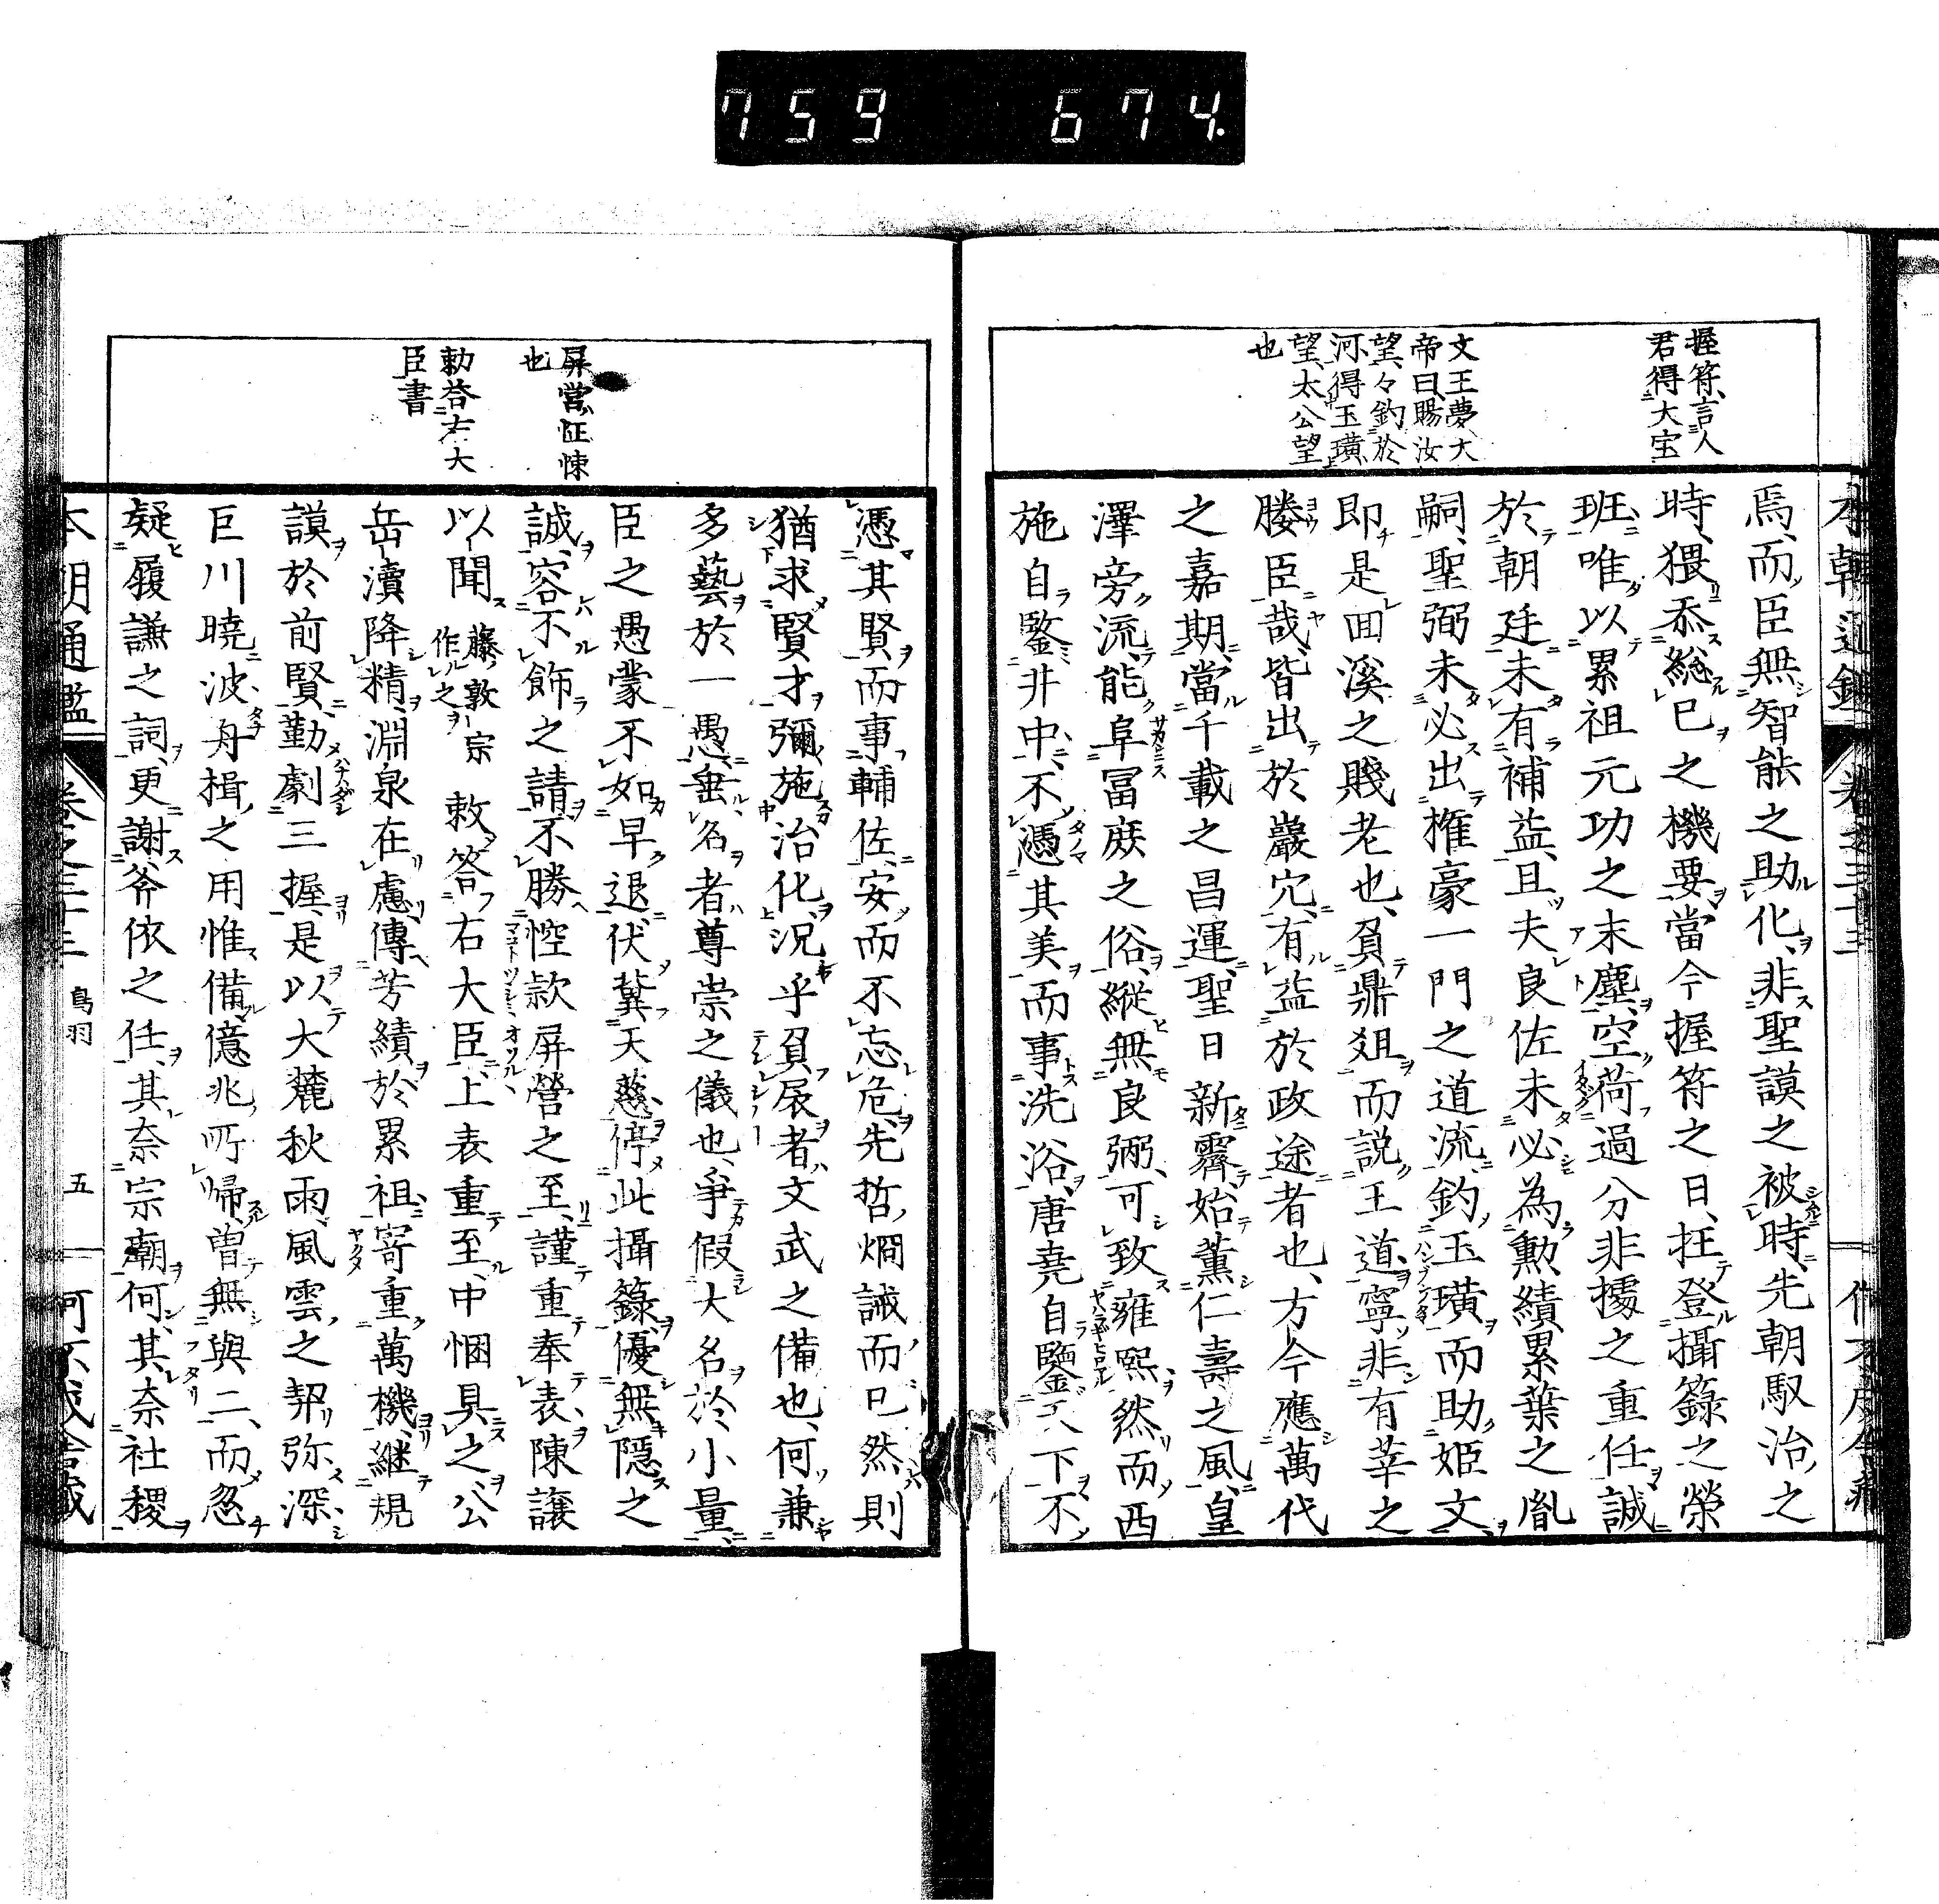 759 674.
握符、言人
君得大宝
文王夢大
帝曰、賜汝
望、々釣於
河、得玉璜
望、太公望
也
本朝通鑑 卷之三十三
焉、而臣無智能之助化、非聖謨之被時、先朝馭治之
時、猥忝総己之機要、當今握符之日、抂登攝籙之榮
班、唯以累祖元功之末塵、空荷過分非據之重任、誠
於朝廷未有補益、且夫良佐未必為勲績累葉之胤
嗣、聖弼未必出権豪一門之道流、釣玉璜而助姫文
即是回溪之賤老也、負鼎爼而説王道、寧非有莘之
媵臣哉、皆出於巖穴、有益於政途者也、方今應萬代
之嘉期、當千載之昌運、聖日新霽、始薫仁壽之風、皇
澤旁流、能阜冨庶之俗、縱無良弼、可致雍熙、然而西
施自鑒井中、不憑其美而事洗浴、唐堯自鑒天下、不
憑其賢而事輔佐、安而不忘危、先哲炯誡而已、然則
猶求賢才、彌施治化、況乎負扆者、文武之備也、何兼
多藝於一愚、垂名者尊崇之儀也、爭假大名於小量、
臣之愚蒙不如早退、伏冀天慈停此攝籙、優無隱之
誠、容不飾之請、不勝悾款屏營之至、謹重奉表、陳讓
以聞 藤敦宗作之 敕答右大臣、上表重至、中悃具之、公
岳瀆降精、淵泉在慮、傳芳績於累祖、寄重萬機、継規
謨於前賢、勤劇三握、是以大麓秋雨、風雲之契弥深、
巨川曉波、舟楫之用惟備、億兆所帰、曽無與二、而忽
疑履謙之詞、更謝爺依之任、其奈宗廟何、其奈社稷
屏営、怔悚
也
勅荅右大
臣書
本朝通鑑 卷之三十三 鳥羽 五